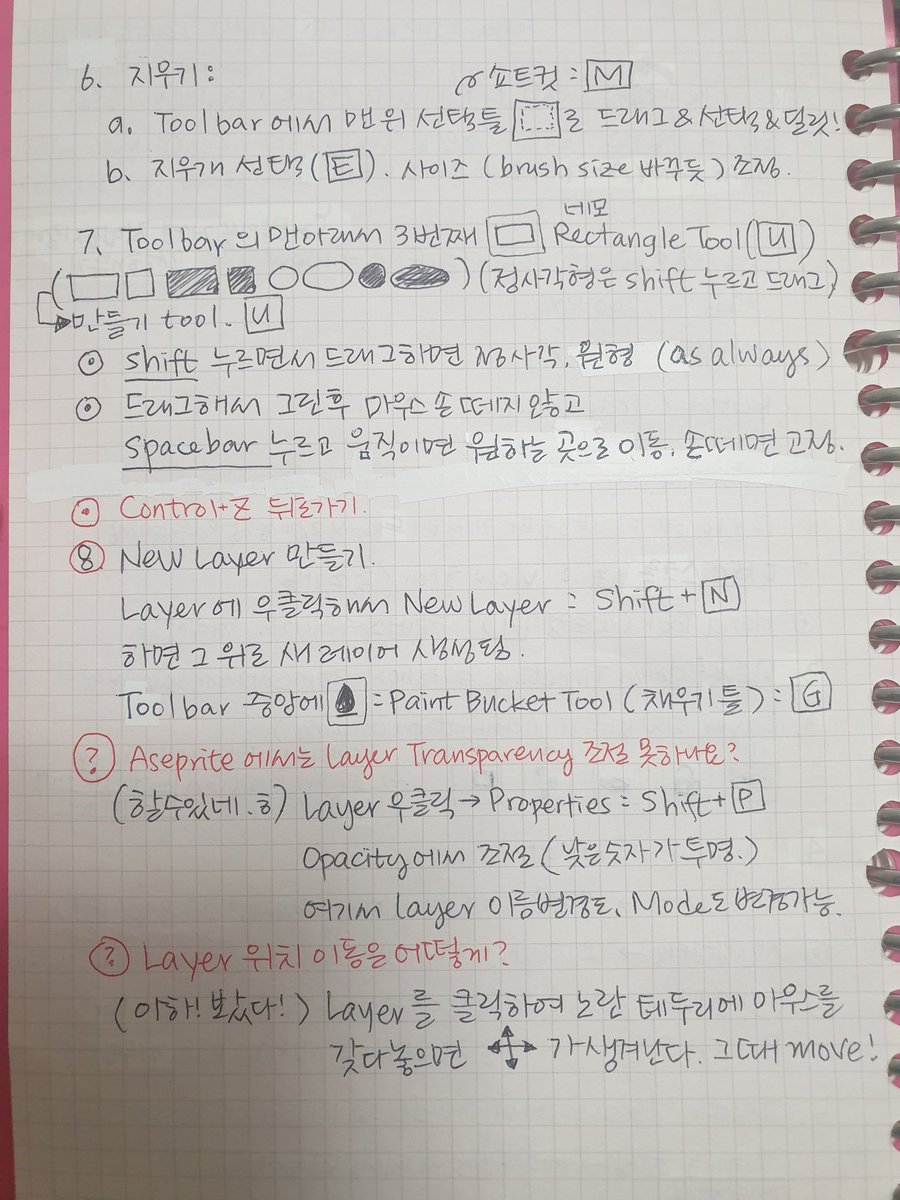 6. 지우기: 쇼트컷: M
a. Toolbar에서 맨위 선택툴 로 드래그&선택&딜릿!
b. 지우개 선택(E). 사이즈 (brush size 바꾸듯) 조정.
네모
7. Toolbar의 맨아래서 3번째 Rectangle Tool(U)
( ) (정사각형은 shift 누르고 드래그)
만들기 tool. U
shift 누르면서 드래그하면 정사각, 원형 (as always)
드래그해서 그린후 마우스 손 떼지 않고
spacebar 누르고 움직이면 원하는 곳으로 이동, 손떼면 고정.
Control+Z 뒤로가기.
8 New Layer 만들기.
Layer에 우클릭해서 New Layer = Shift + N
하면 그 위로 새 레이어 생성됨.
Toolbar 중앙에 = Paint Bucket Tool (채우기 툴) : G
? Aseprite 에서는 Layer Transparency 조절 못하나요?
(할수있네.히) Layer 우클릭 → Properties = Shift + P
Opacity에서 조절 (낮은숫자가 투명.)
여기서 layer 이름변경도, Mode도 변경가능.
? Layer 위치 이동은 어떻게?
(아하! 봤다!) Layer를 클릭하여 노란 테두리에 마우스를
갖다놓으면 가 생겨난다. 그때 move!